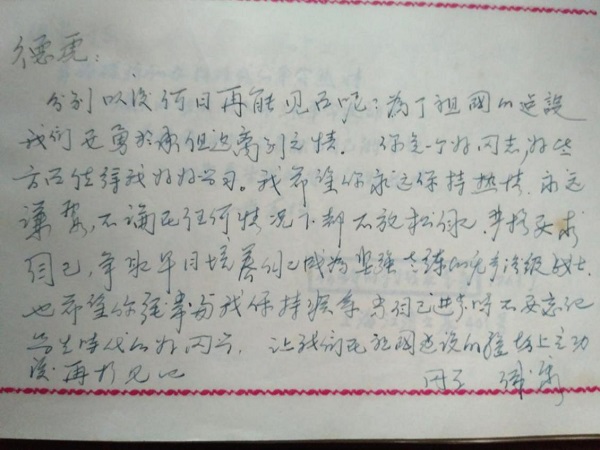 德虎：
分别以后何日再能见面呢？为了祖国的建设
我们要勇于承担这离别之情．你是一个好同志，好些
方面值得我好好学习。我希望你永远保持热情，永远
谦虚，不论在任何情况下都不放松自己，严格要求
自己，争取早日培养自己成为坚强老练的无产阶级战士．
也希望你经常与我保持联系，当自己进步时不要忘记
学生时代的好同学．让我们在祖国建设的
后再相见吧
同学